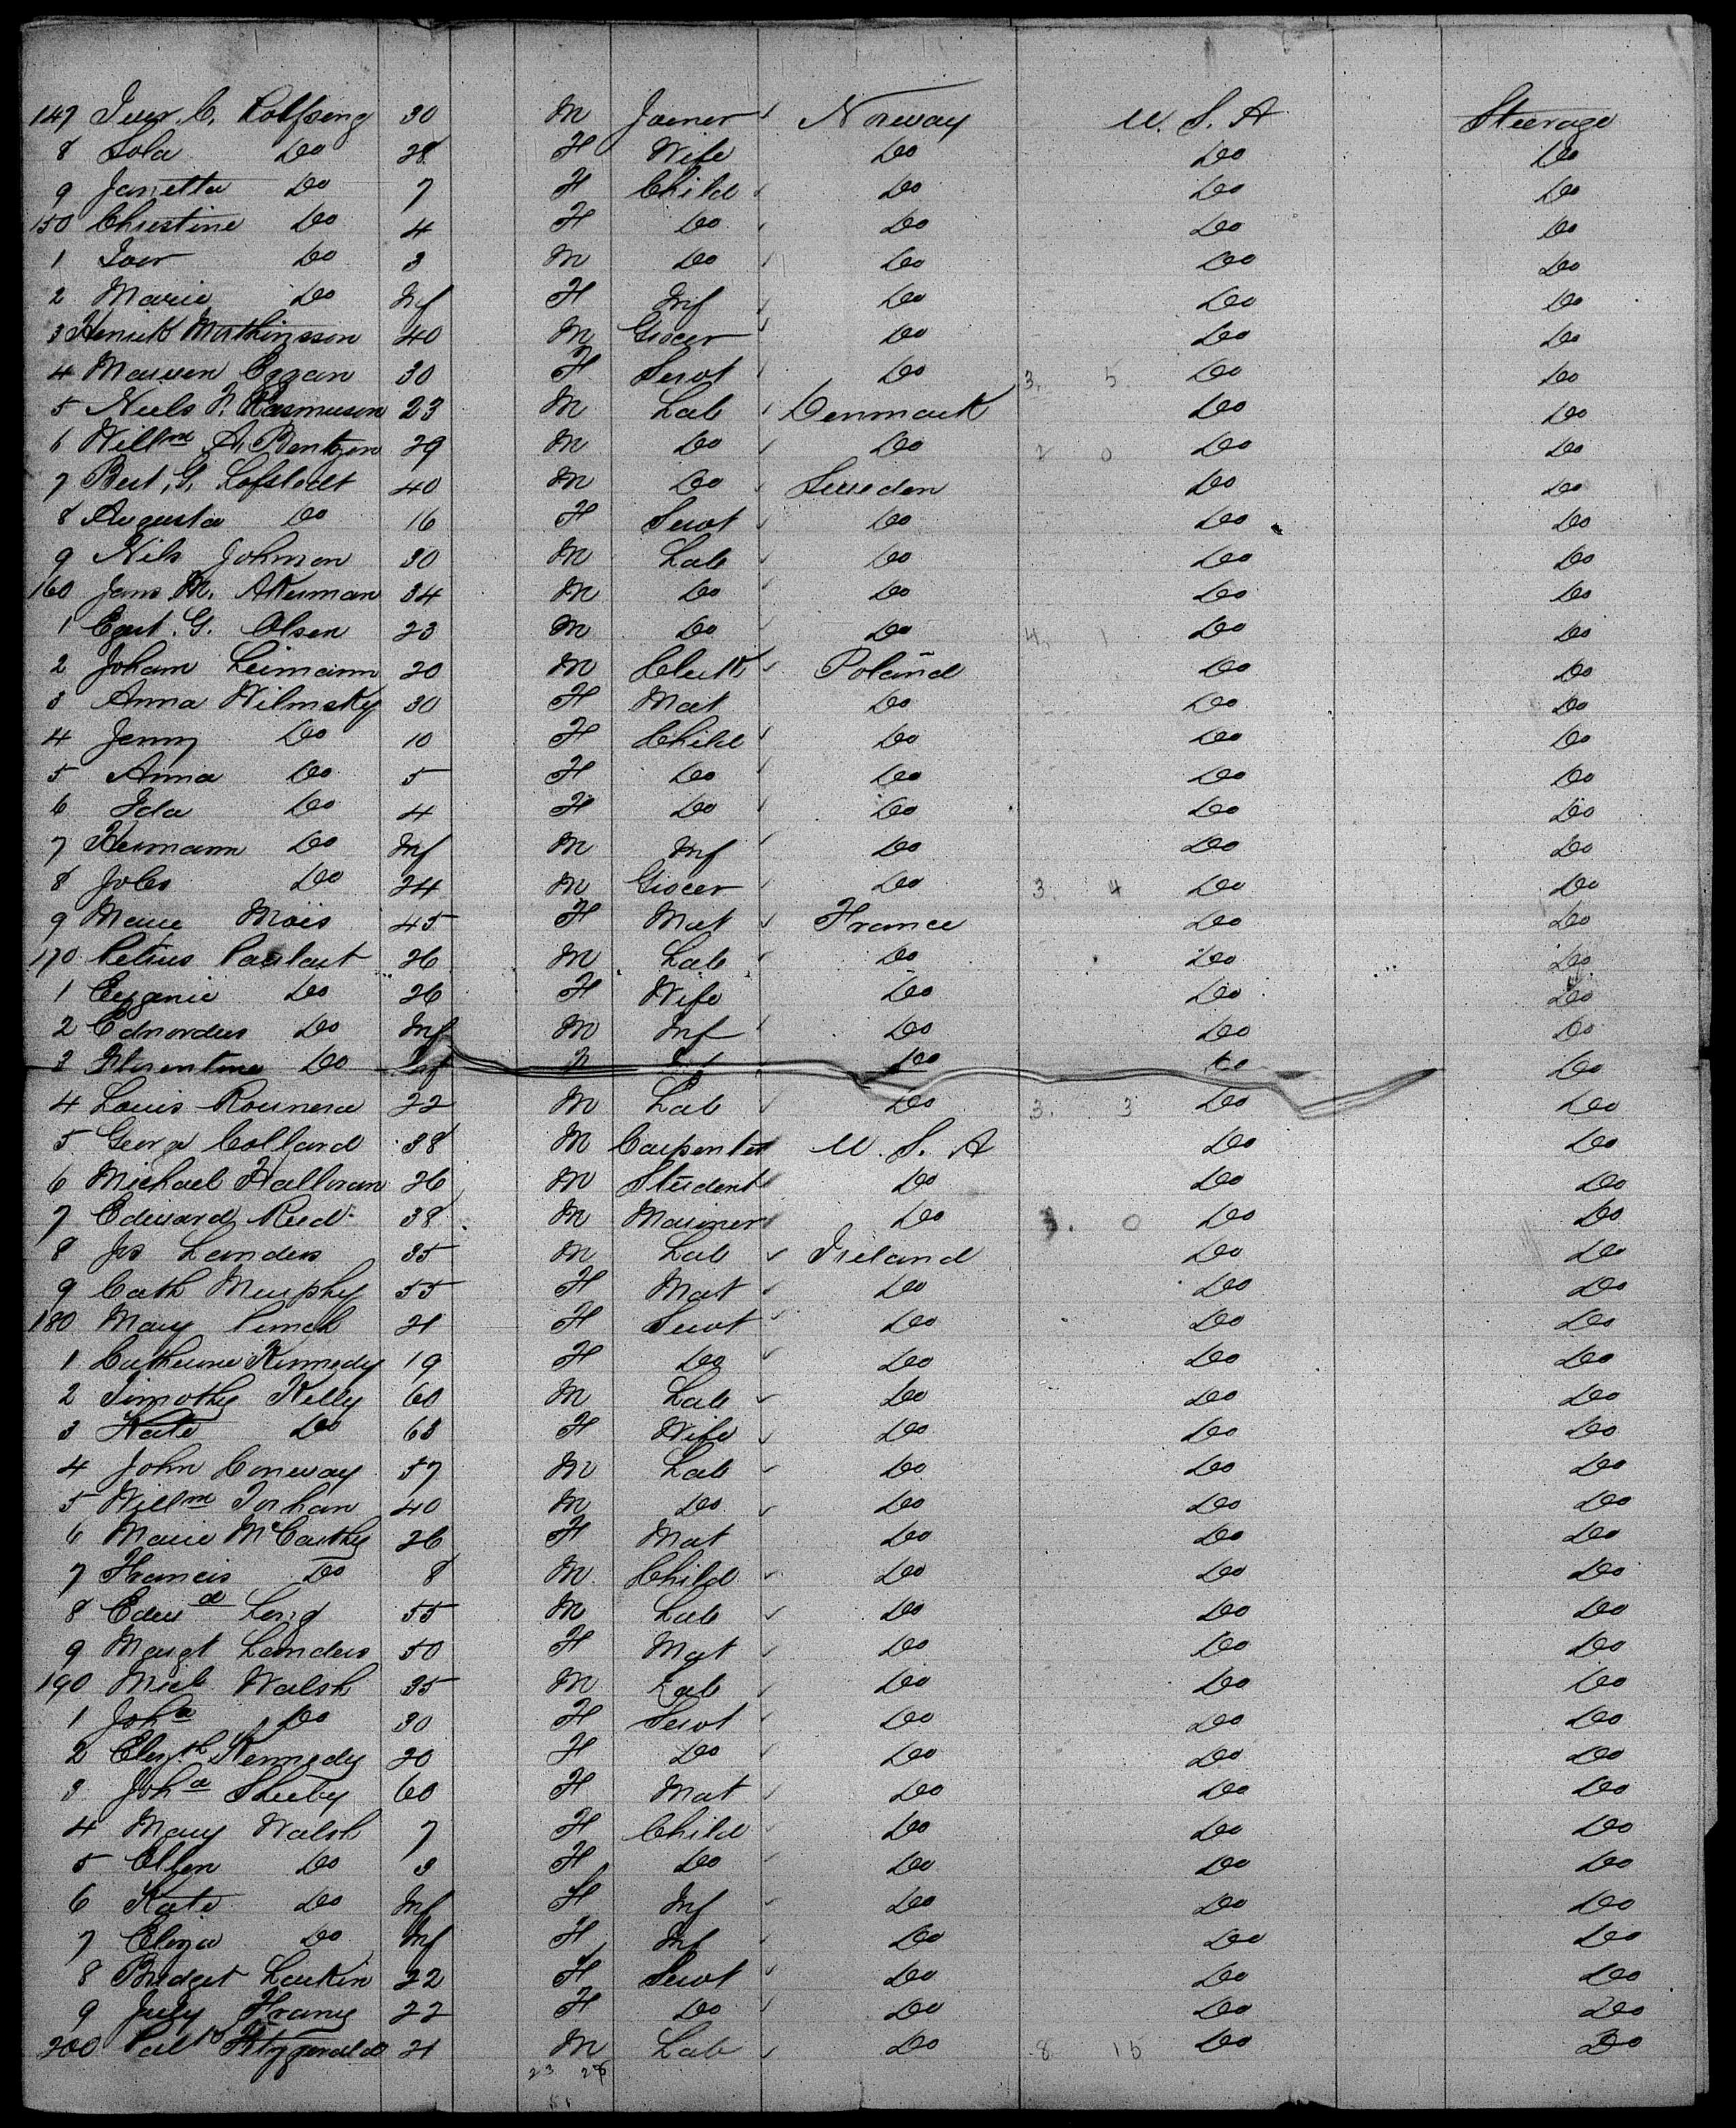 147 Iver. C. Rolfseng 30 M Joener Norway U. S. A Steerage
8 Lola Do 28 F Wife Do Do Do
9 Janetta Do 7 F Child Do Do Do
150 Christine Do 4 F Do Do Do Do
1 Iver Do 3 M Do Do Do Do
2 Marie Do Inf F Inf Do Do Do
3 Henrik Mathinsson 40 M Grocer Do Do Do
4 Mauren Eggan 30 F Servt Do 3. 5 Do Do
5 Niels P. Rasmuson 23 M Lab Denmark Do Do
6 Willm A. Bentzen 29 M Do Do 2 0 Do Do
7 Bert. G. Lofstedt 40 M Do Sweden Do Do
8 Augusta Do 16 F Servt Do Do Do
9 Nils Johnson 30 M Lab Do Do Do
160 Jans M. Akerman 34 M Do Do Do Do
1 Egert. G. Olsen 23 M Do Do 4. 1 Do Do
2 Joham Leimann 20 M Clerk Poland Do Do
3 Anna Wilmsky 30 F Mat Do Do Do
4 Jenny Do 10 F Child Do Do Do
5 Anna Do 5 F Do Do Do Do
6 Ida Do 4 F Do Do Do Do
7 Hermann Do Inf M Inf Do Do Do
8 Joles Do 24 M Grocer Do 3. 4 Do Do
9 Marie Mois 45 F Mat France Do Do
170 Petrus Paulart 26 M Lab Do Do Do
1 Eugenie Do 26 F Wife Do Do Do
2 Ednordus Do Inf M Inf Do Do Do
3 Florentine Do Inf Do Do Do
4 Louis Rounera 22 M Lab Do 3. 3 Do Do
5 George Collard 38 M Carpenter U. S. A Do Do
6 Michael Halloran 26 M Student Do Do Do
7 Edward Reed 38 M Mariner Do 3. 0 Do Do
8 Js Landers 35 M Lab Ireland Do Do
9 Cath Murphy 55 F Mat Do Do Do
180 Mary Punch 21 F Servt Do Do Do
1 Catherine Kennedy 19 F Do Do Do Do
2 Timothy Kelly 60 M Lab Do Do Do
3 Kate Do 63 F Wife Do Do Do
4 John Conway 57 M Lab Do Do Do
5 Willm Torhan 40 M Do Do Do Do
6 Marie McCarthy 26 F Mat Do Do Do
7 Francis Do 8 M Child Do Do Do
8 Edwd Long 55 M Lab Do Do Do
9 Margt Landers 50 F Mat Do Do Do
190 Micl Walsh 35 M Lab Do Do Do
1 Joha Do 30 F Servt Do Do Do
2 Elizth Kennedy 20 F Do Do Do Do
3 Joha Sheehy 60 F Mat Do Do Do
4 Mary Walsh 7 F Child Do Do Do
5 Ellen Do 3 F Do Do Do Do
6 Kate Do Inf F Inf Do Do Do
7 Eliza Do Inf F Inf Do Do Do
8 Bridget Larkin 22 F Servt Do Do Do
9 July Frany 22 F Do Do Do Do
200 Patk Fitzgerald 21 M Lab Do 8 15 Do Do
23 28
51